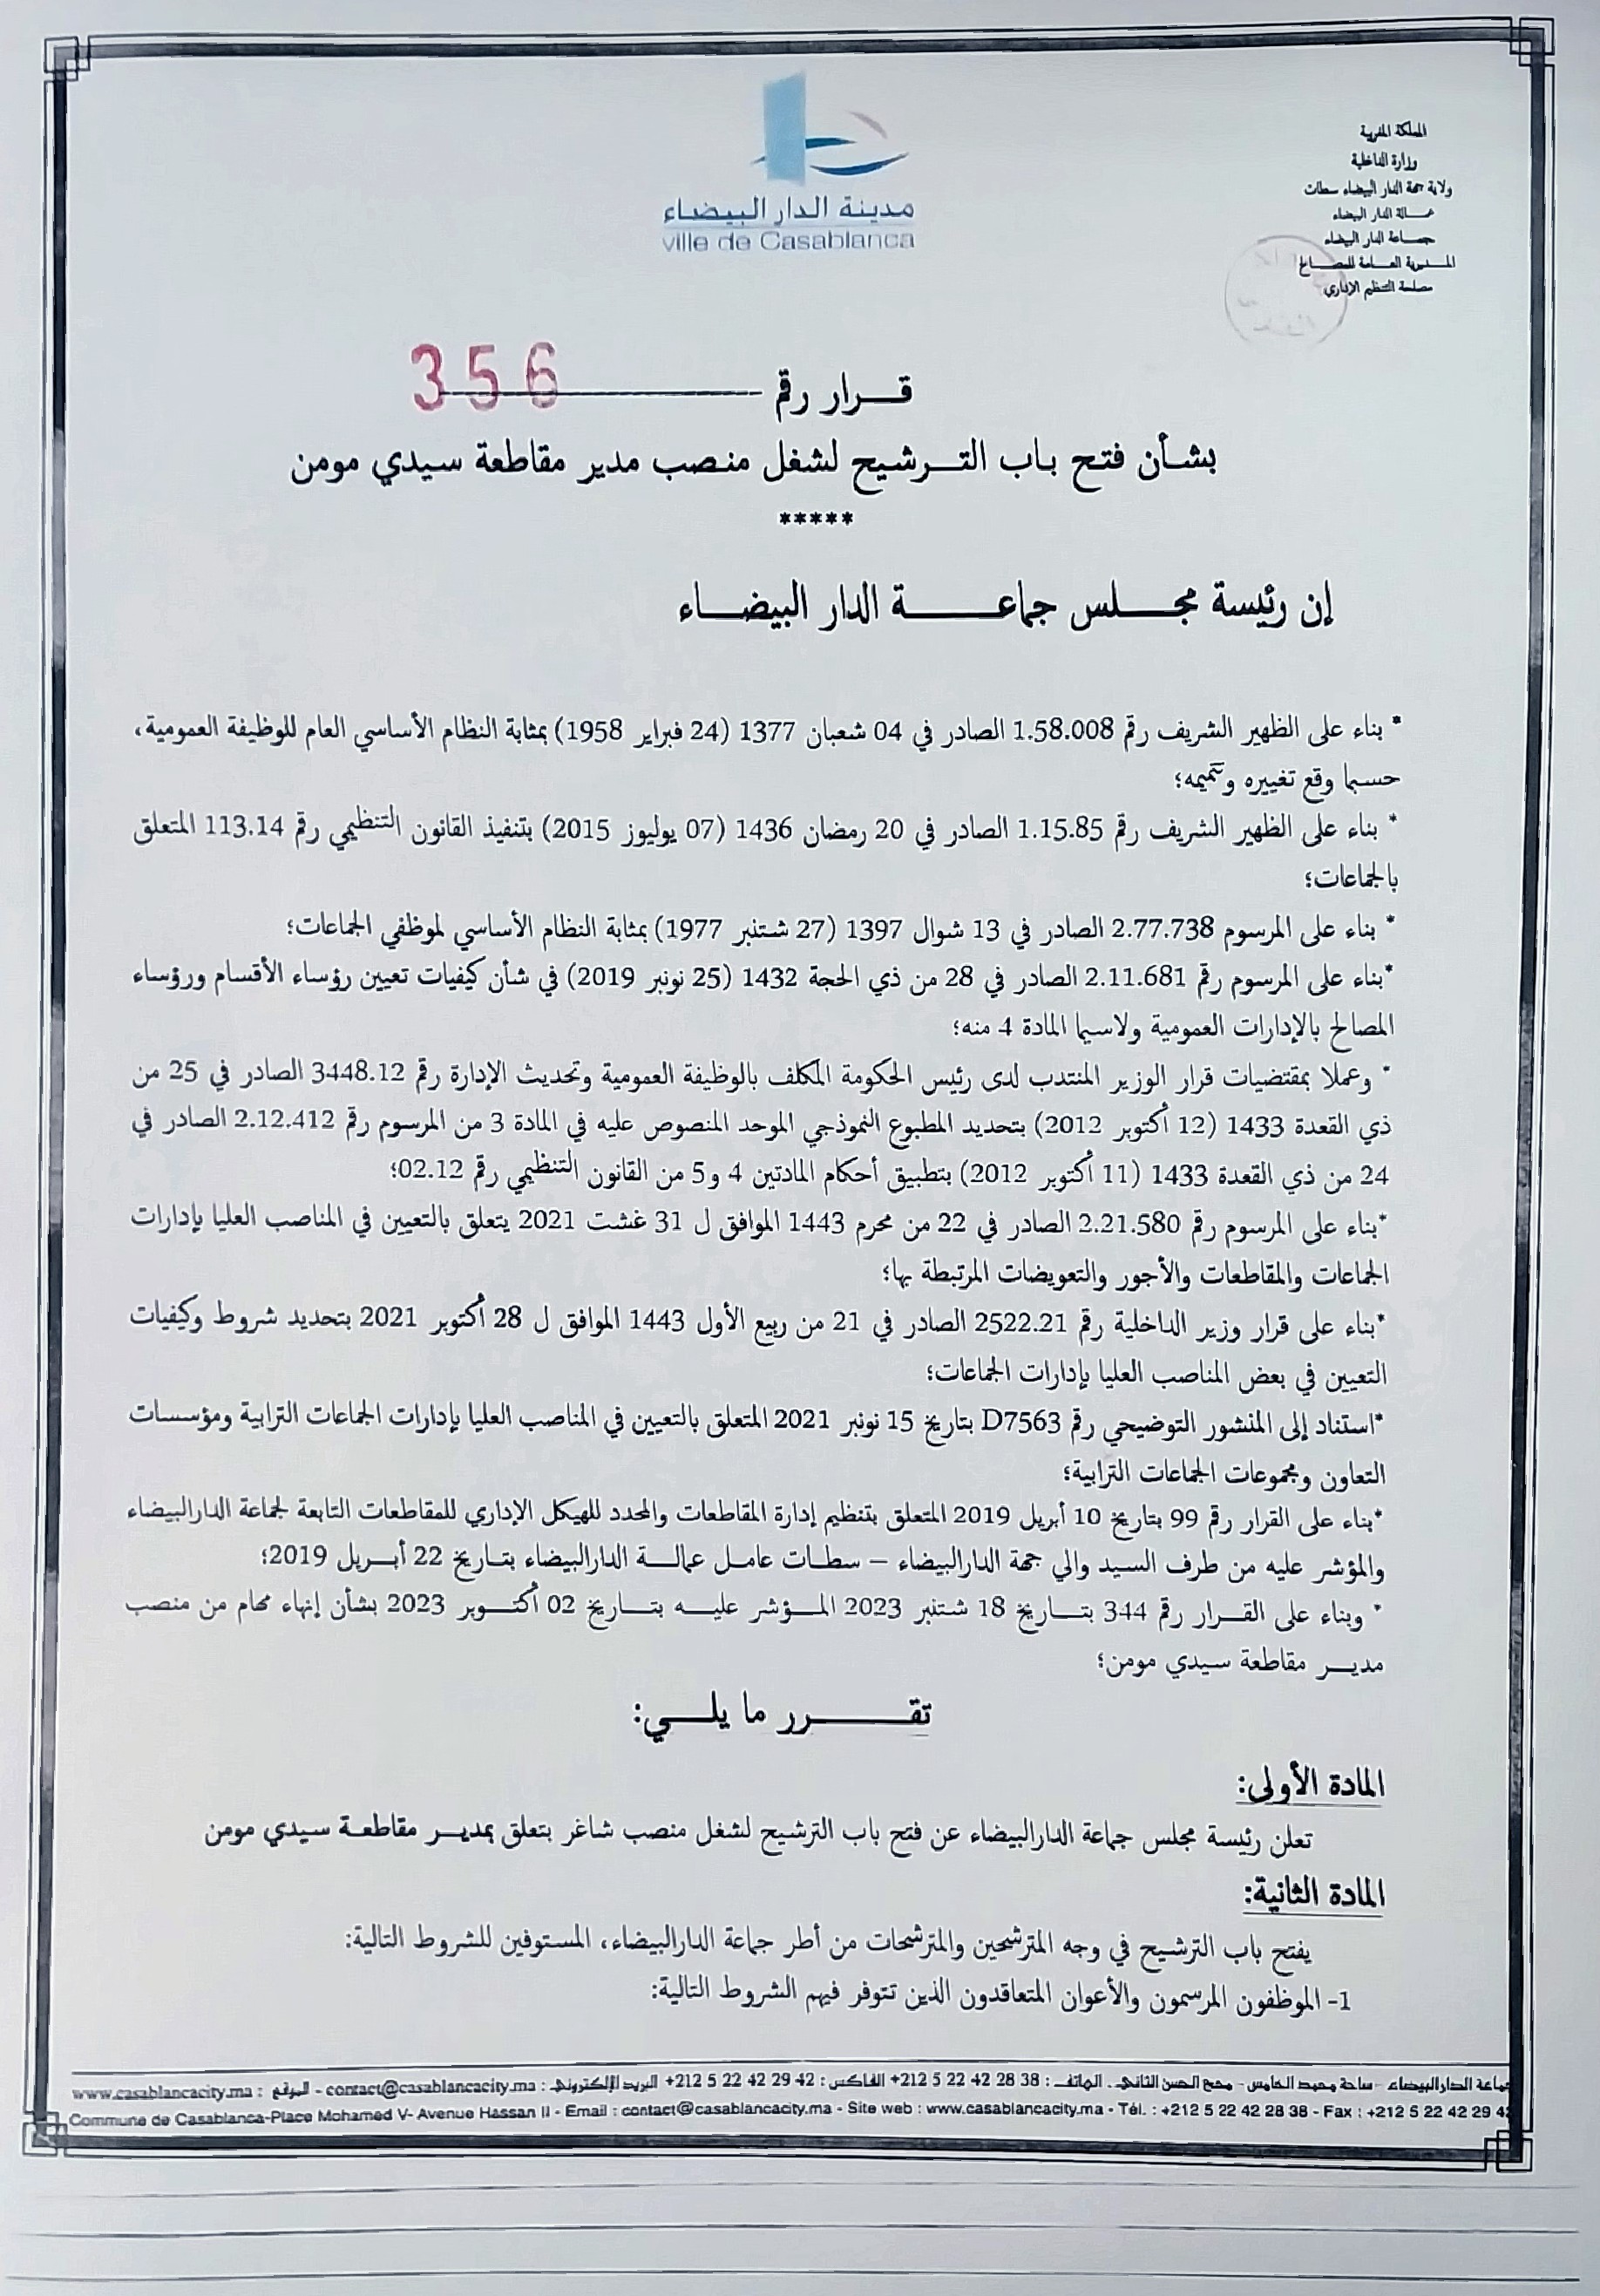 المملكة المغربية
وزارة الداخلية
ولاية جهة الدار البيضاء سطات
عمـــالة الدار البيضاء
جمـــاعة الدار البيضاء
المـــديرية العـــامة للمصـــالح
مصلحة التنظيم الإداري
مدينة الدار البيضاء
ville de Casablanca
قـــرار رقم 356
بشـأن فتـح بـاب التـــرشيح لشغل منـصب مدير مقاطعة سـيدي مومن
*****
إن رئيسة مجـــلس جماعـــــة الدار البيضـــاء
* بناء على الظهير الشريف رقم 1.58.008 الصادر في 04 شعبان 1377 (24 فبراير 1958) بمثابة النظام الأساسي العام للوظيفة العمومية،
حسبما وقع تغييره وتتميمه؛
* بناء على الظهير الشريف رقم 1.15.85 الصادر في 20 رمضان 1436 (07 يوليوز 2015) بتنفيذ القانون التنظيمي رقم 113.14 المتعلق
بالجماعات؛
* بناء على المرسوم 2.77.738 الصادر في 13 شوال 1397 (27 شتنبر 1977) بمثابة النظام الأساسي لموظفي الجماعات؛
*بناء على المرسوم رقم 2.11.681 الصادر في 28 من ذي الحجة 1432 (25 نونبر 2019) في شأن كيفيات تعيين رؤساء الأقسام ورؤساء
المصالح بالإدارات العمومية ولاسيما المادة 4 منه؛
* وعملا بمقتضيات قرار الوزير المنتدب لدى رئيس الحكومة المكلف بالوظيفة العمومية وتحديث الإدارة رقم 3448.12 الصادر في 25 من
ذي القعدة 1433 (12 أكتوبر 2012) بتحديد المطبوع النموذجي الموحد المنصوص عليه في المادة 3 من المرسوم رقم 2.12.412 الصادر في
24 من ذي القعدة 1433 (11 أكتوبر 2012) بتطبيق أحكام المادتين 4 و5 من القانون التنظيمي رقم 02.12؛
*بناء على المرسوم رقم 2.21.580 الصادر في 22 من محرم 1443 الموافق ل 31 غشت 2021 يتعلق بالتعيين في المناصب العليا بإدارات
الجماعات والمقاطعات والأجور والتعويضات المرتبطة بها؛
*بناء على قرار وزير الداخلية رقم 2522.21 الصادر في 21 من ربيع الأول 1443 الموافق ل 28 أكتوبر 2021 بتحديد شروط وكيفيات
التعيين في بعض المناصب العليا بإدارات الجماعات؛
*استناد إلى المنشور التوضيحي رقم D7563 بتاريخ 15 نونبر 2021 المتعلق بالتعيين في المناصب العليا بإدارات الجماعات الترابية ومؤسسات
التعاون ومجموعات الجماعات الترابية؛
*بناء على القرار رقم 99 بتاريخ 10 أبريل 2019 المتعلق بتنظيم إدارة المقاطعات والمحدد للهيكل الإداري للمقاطعات التابعة لجماعة الدارالبيضاء
والمؤشر عليه من طرف السيد والي جهة الدارالبيضاء – سطـات عامـل عمالـــة الدارالبيضاء بتـاريخ 22 أبـــريل 2019؛
* وبناء على القـــرار رقم 344 بتـــاريخ 18 شـتنبر 2023 المـــؤشر عليـــه بتـــاريخ 02 أكتـــوبر 2023 بشأن إنهاء مهام من منصب
مديـــر مقاطعة سـيدي مومن؛
تقـــــرر ما يلـــي:
المادة الأولى:
تعلن رئيسة مجلس جماعة الدارالبيضاء عن فتح باب الترشيح لشغل منصب شاغر يتعلق بمديـــر مقاطعـة سـيدي مومن
المادة الثانية:
يفتح باب الترشـيح في وجه المترشحين والمترشحات من أطر جماعة الدارالبيضاء، المستوفين للشروط التالية:
1- الموظفون المرسمون والأعوان المتعاقدون الذين تتوفر فيهم الشروط التالية:
جماعة الدارالبيضاء - ساحة محمد الخامس - ممر الحسن الثاني - الهاتف : 38 28 42 22 5 212+ الفاكس : 42 29 42 22 5 212+ البريد الإلكتروني : contact@casablancacity.ma - الموقع : www.casablancacity.ma
Commune de Casablanca-Place Mohamed V- Avenue Hassan II - Email : contact@casablancacity.ma - Site web : www.casablancacity.ma - Tél. : +212 5 22 42 28 38 - Fax : +212 5 22 42 29 42